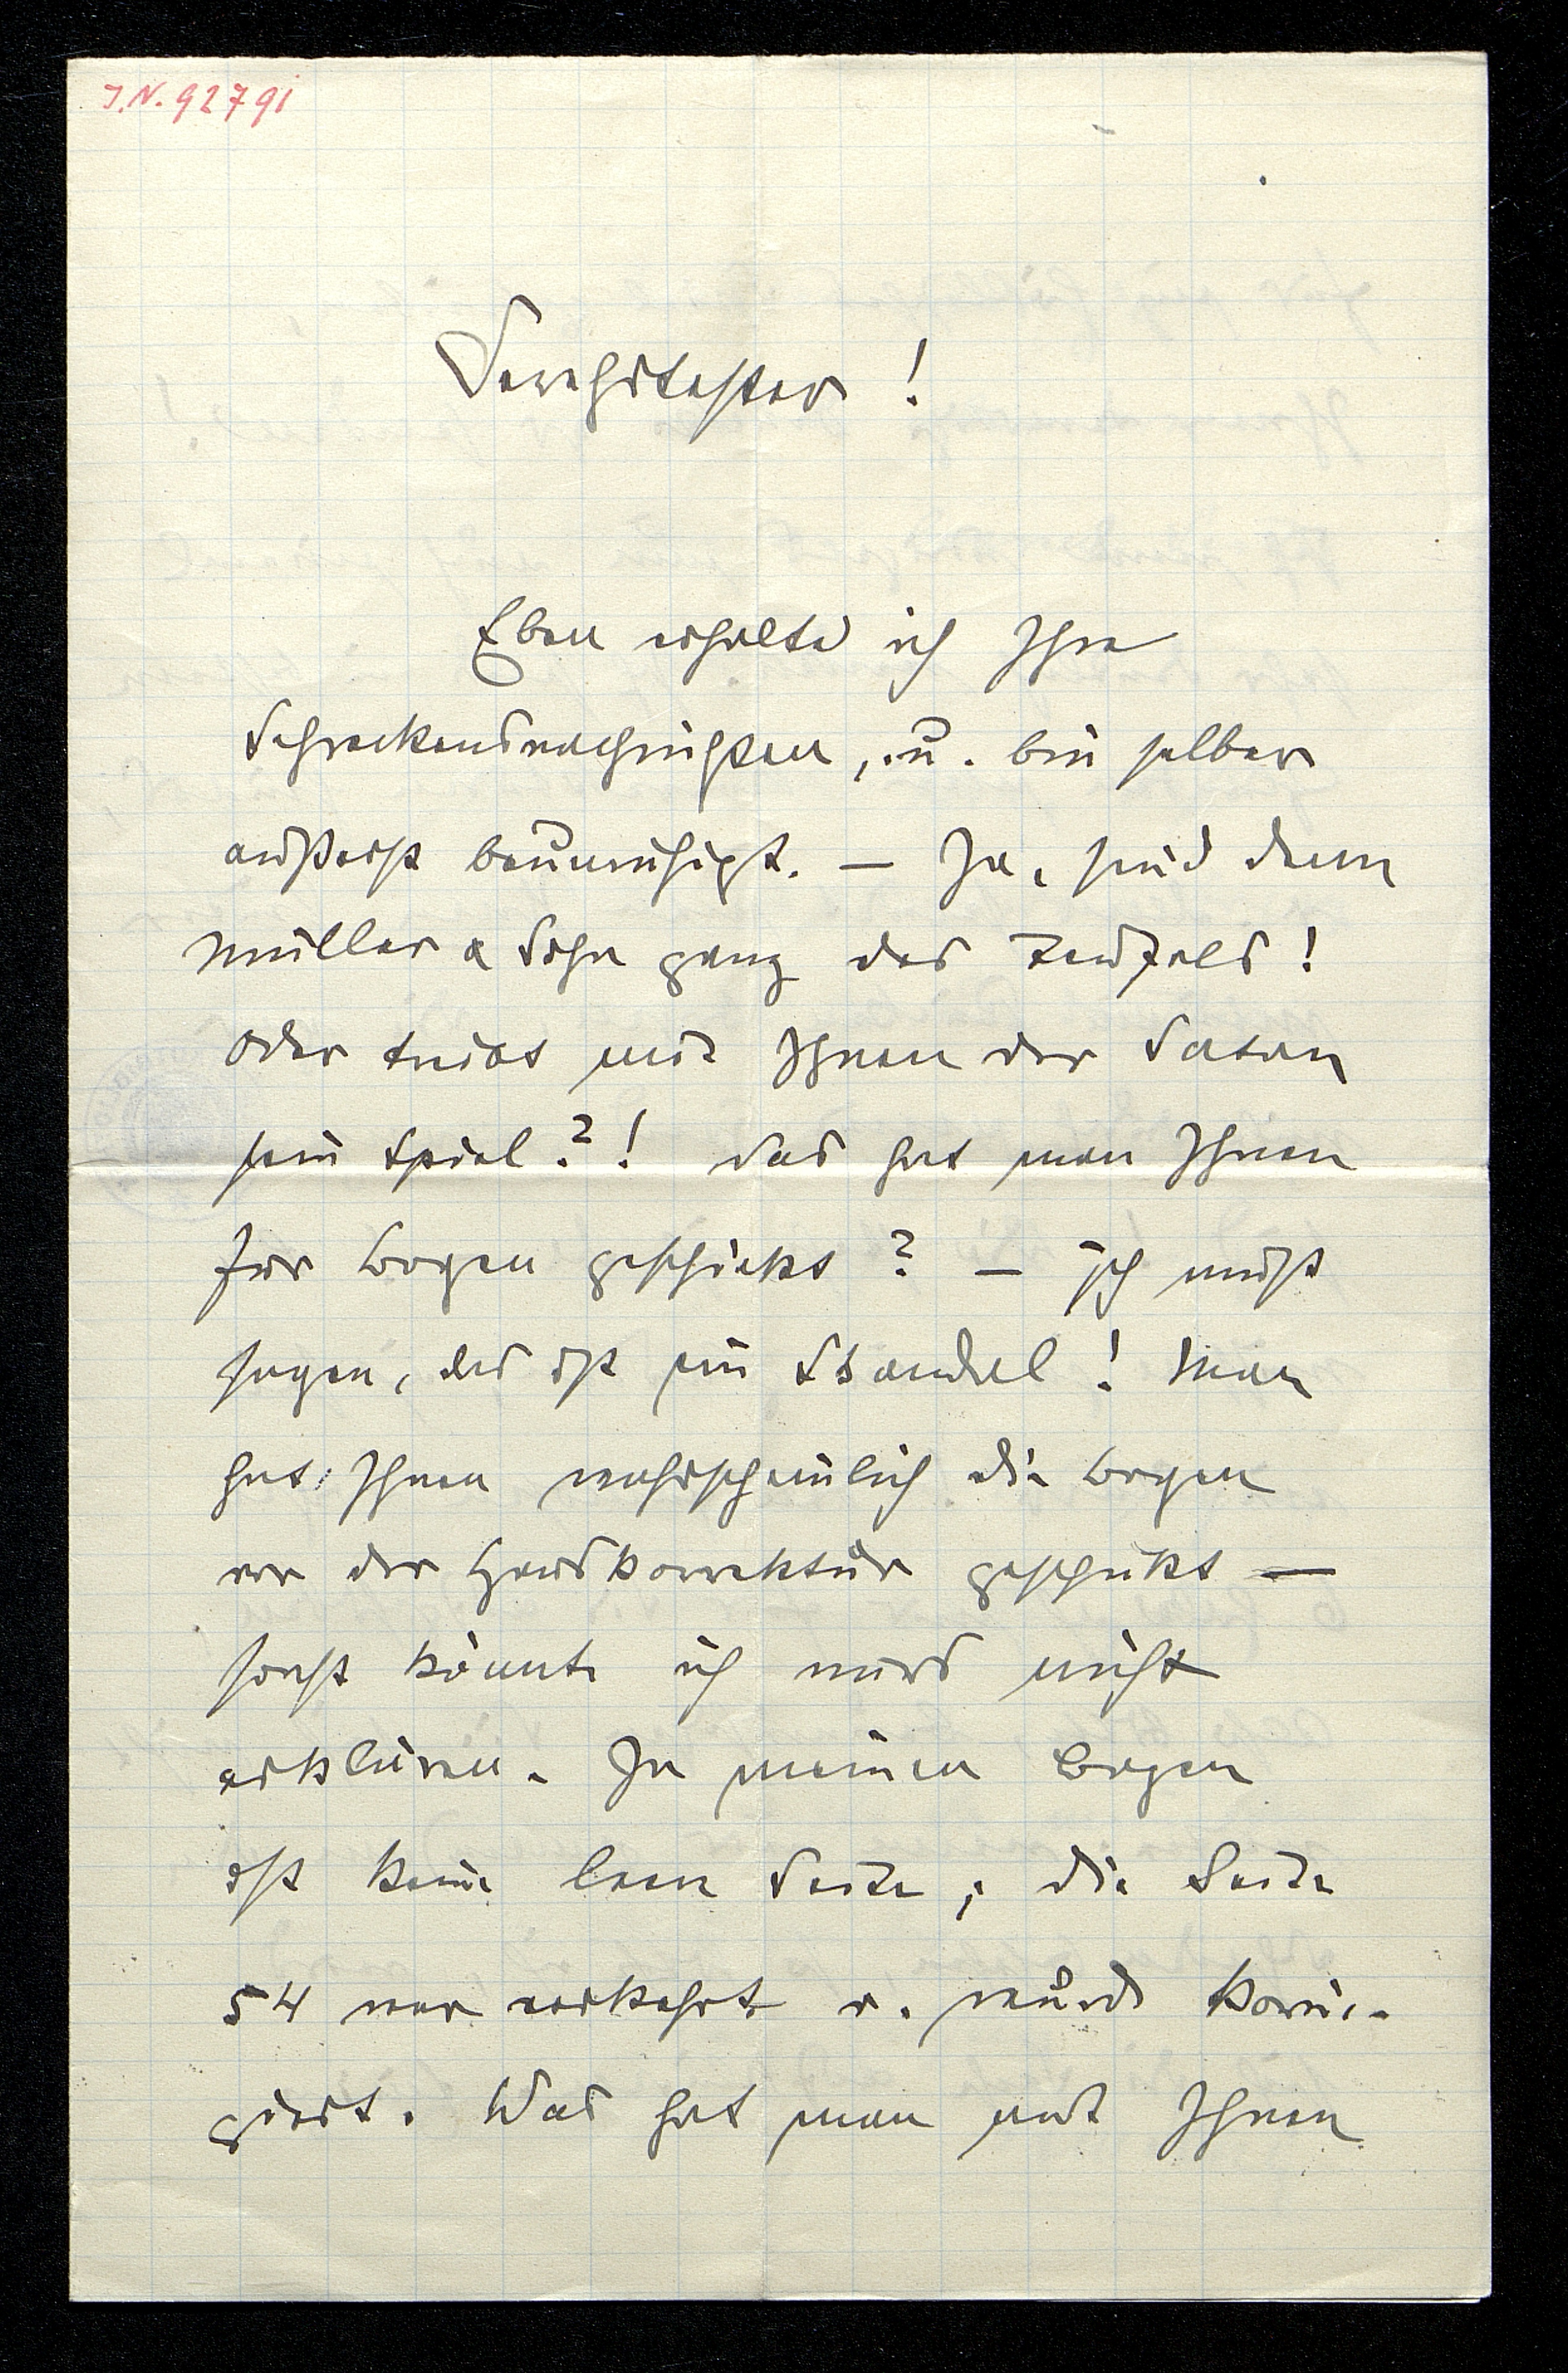 J.N. 92791
Verehrtester !
Eben erhalte ich Ihre
Schreckensnachrichten, u. bin selber
äußerst beunruhigt. — Ja, sind denn
Müller & Sohn ganz des Teufels !
Oder treibt mit Ihnen der Satan
sein Spiel ? ! Was hat man Ihnen
für Bogen geschickt ? — Ich muß
sagen, das ist ein Skandal ! Man
hat Ihnen wahrscheinlich die Bogen
vor der Hauskorrektur geschickt —
sonst könnte ich mirs nicht
erklären. In meinen Bogen
ist keine leere Seite ; die Seite
54 war verkehrt u. wurde korri-
giert. Was hat man mit Ihnen